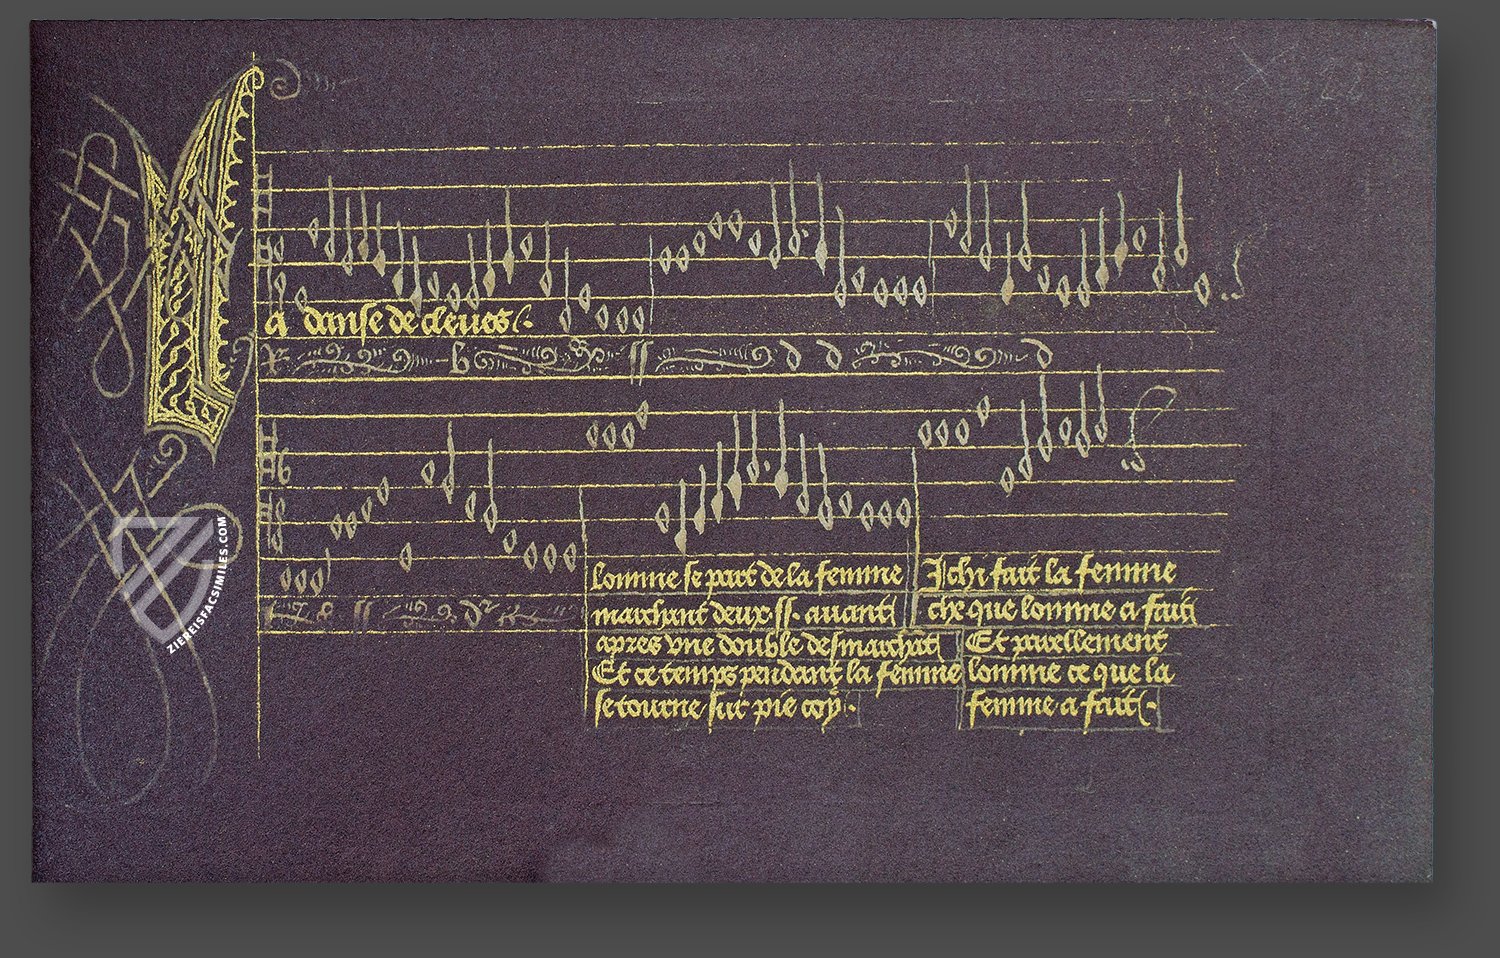 La danse de cleues
R b ss d d d
lomme se part de la femme
marchant deux ss. auant
apres vne double desmarchat
Et ce temps pendant la femme
se tourne sur pie coy.
Ichi fait la femme
che que lomme a fait
Et parellement
lomme ce que la
femme a fait.
ZIEREISFACSIMILES.COM